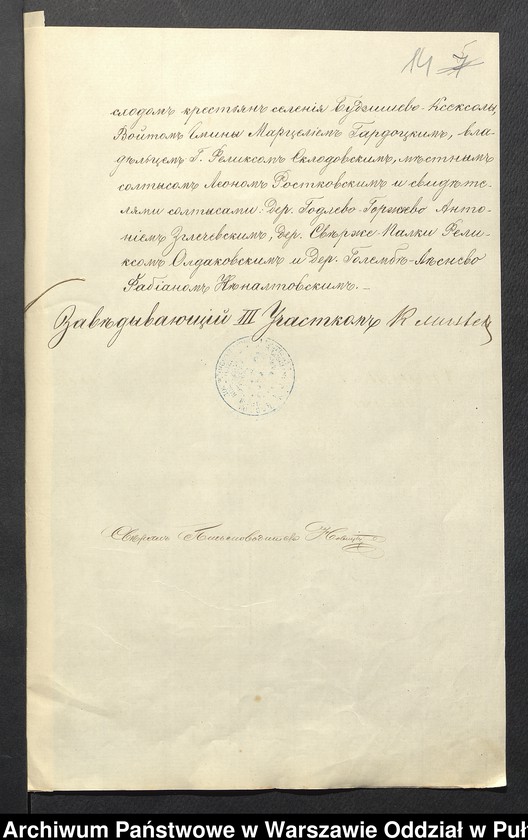 14
слодомъ крестьянъ селенія Будзишево-Ксєксолы,
Войтомъ Гмины Марцеліемъ Гардоцкимъ, вла-
дѣльцемъ Г. Феликсомъ Склодовскимъ, мѣстнымъ
солтысомъ Леономъ Ростковскимъ и свидѣте-
лями солтысами: Дер. Годлево-Горжево Анто-
ніемъ Зглечевскимъ, Дер. Свѣрже-Панки Фели-
ксомъ Олдаковскимъ и Дер. Голембѣ-Лѣснево
Фабіаномъ
Завѣдывающій III Участкомъ
Свѣрилъ Письмоводитель
Archiwum Państwowe w Warszawie Oddział w Puł